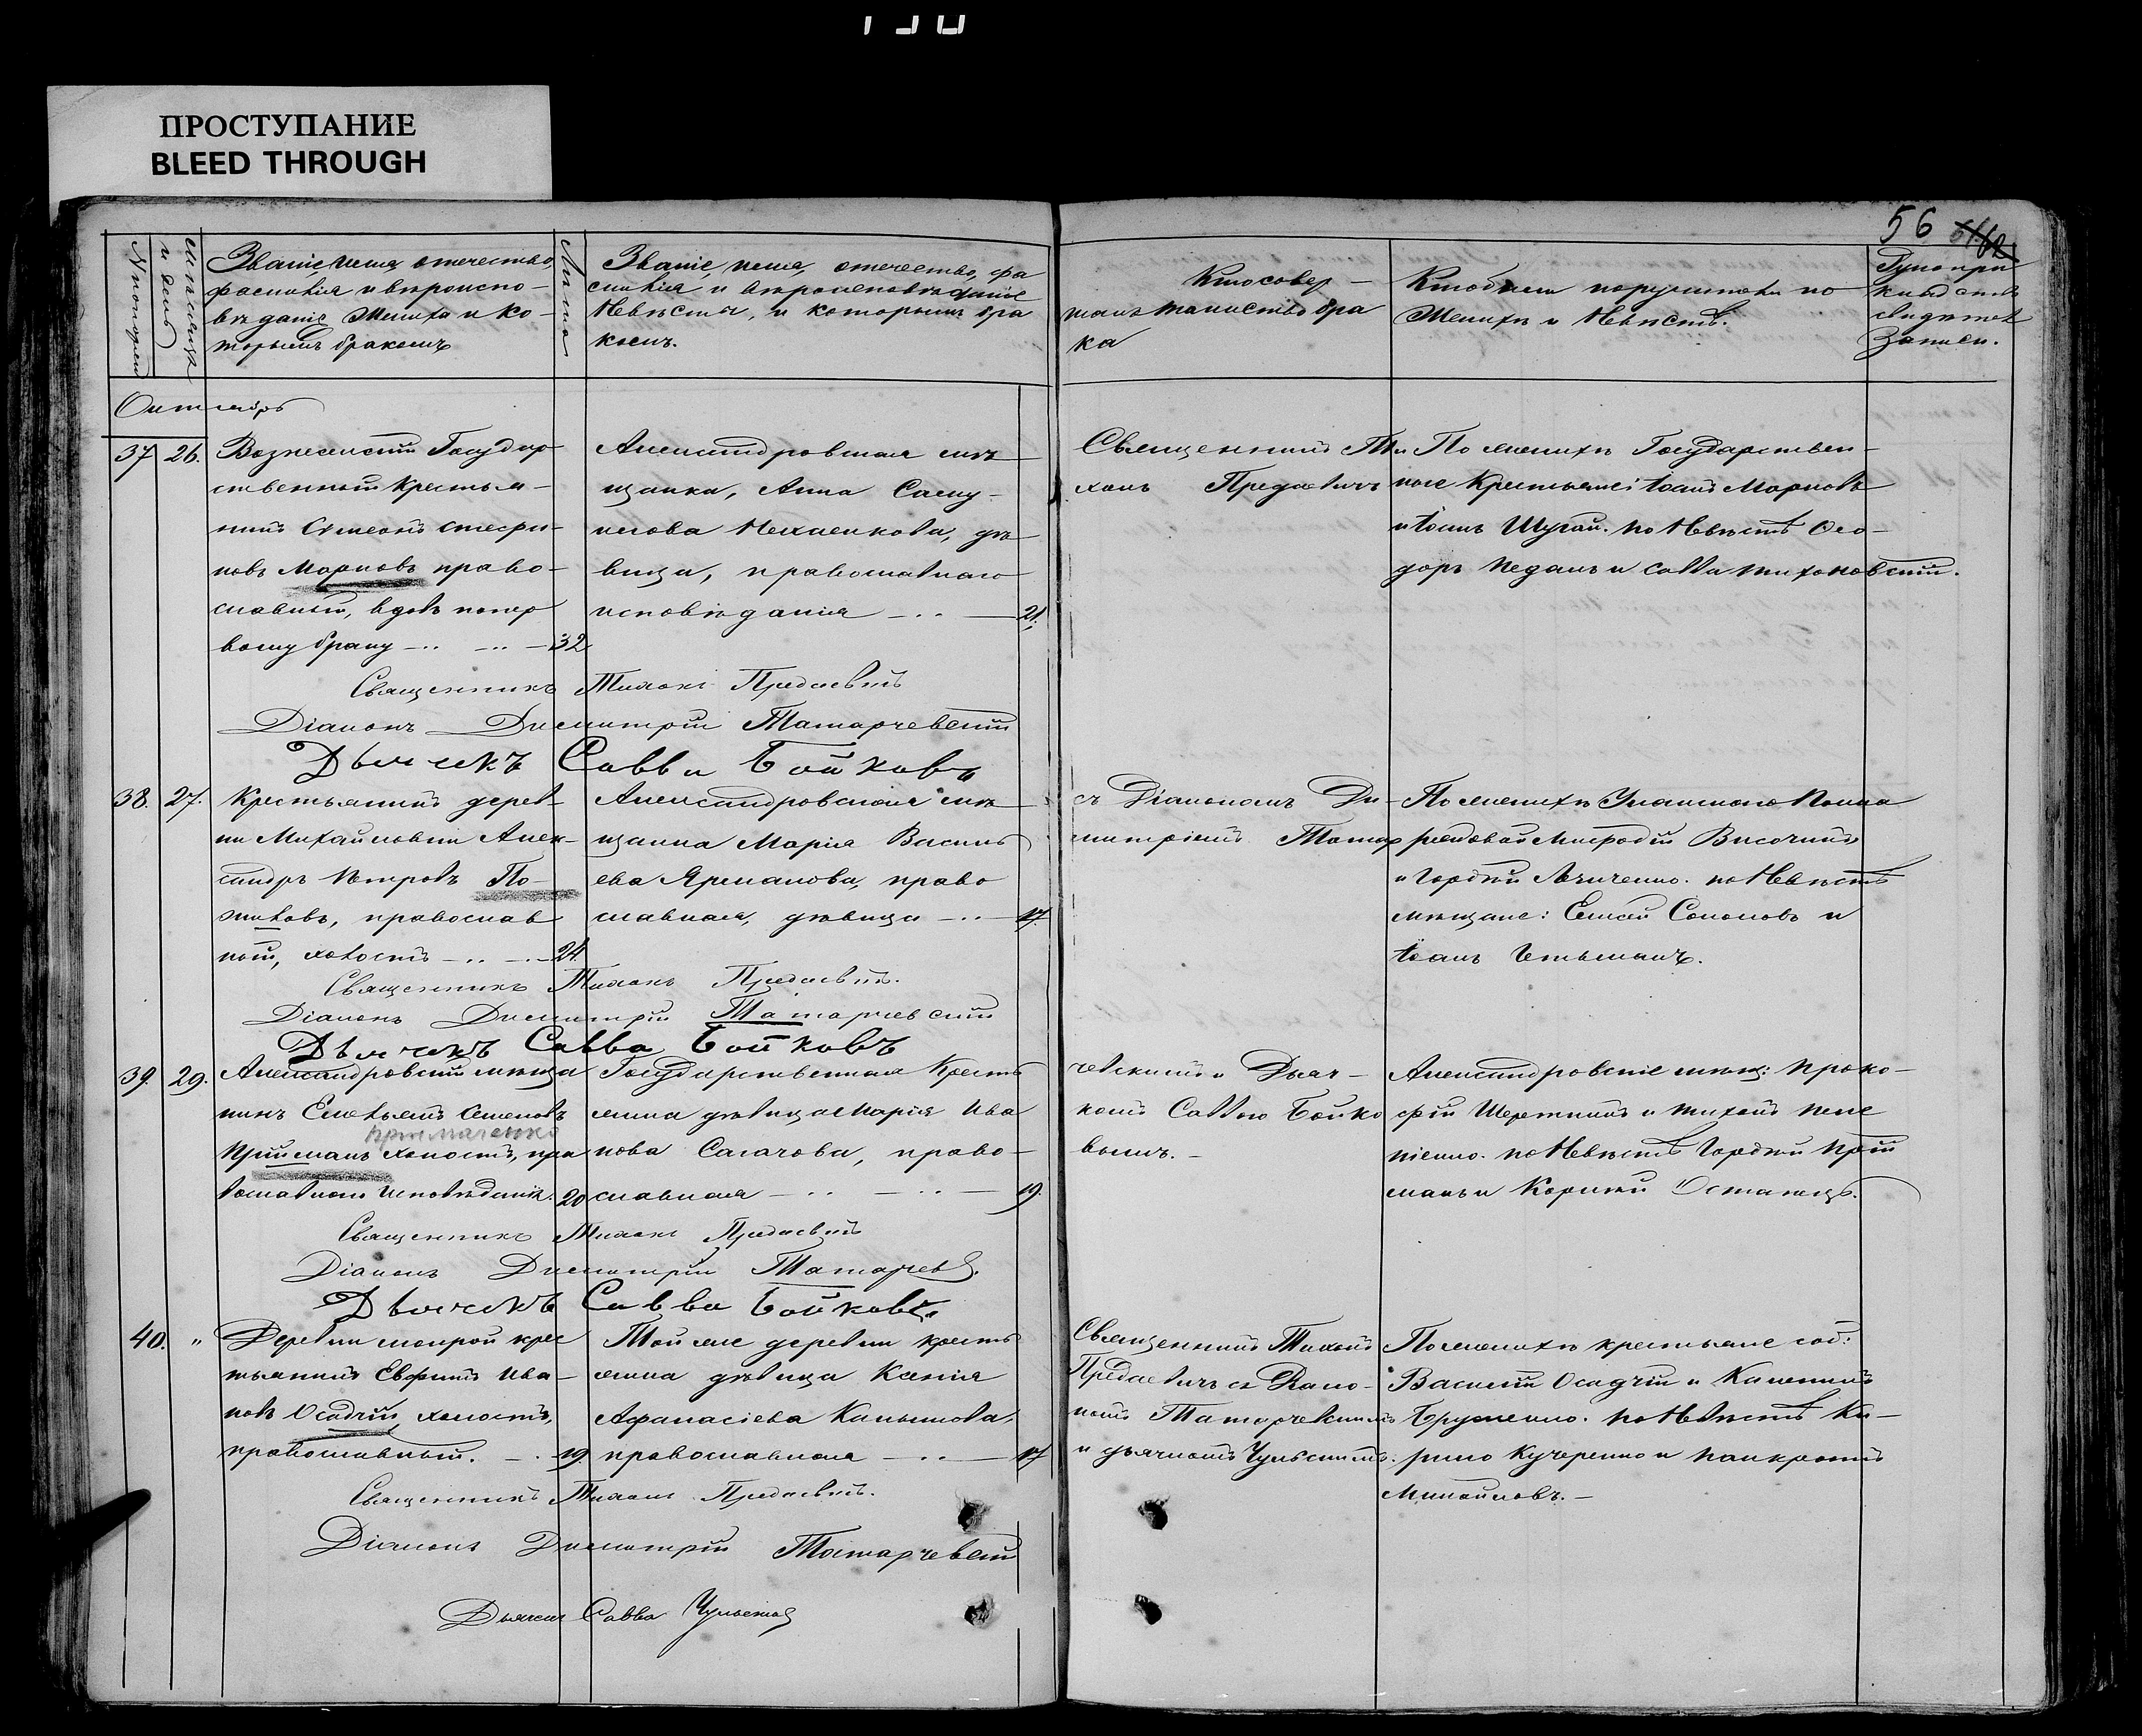 ПРОСТУПАНИЕ
BLEED THROUGH
56
Званіе, имя, отечество,
фамилія и вѣроиспо-
вѣданіе Жениха и ко-
торымъ бракомъ
Лѣта
Званіе, имя, отечество, фа
милія и вѣроисповѣданіе
Невѣсты, и которымъ бра
комъ.
Кто совер-
шалъ таинство бра
ка
Кто были поручители по
Женихѣ и Невѣстѣ.
Октябрь
37 26.
Вознесенскій Государ
ственный крестья-
нинъ Симеонъ Стефа-
новъ Марковъ право-
славный, вдовъ попер
вому браку 32
Александровская мѣ
щанка, Анна Саму-
илова
вица, православнаго
исповѣданія 21.
Священникъ Ти
хонъ Предаевичъ
По женихѣ Государствен-
ные Крестьяне: Іоаннъ Марковъ
и Іоаннъ Шугай. по Невѣстѣ Ѳео-
доръ Педанъ и Савва Тихоновскій.
Священникъ Тихонъ Предаевичъ
Діаконъ Димитрій Татарчевскій
Дьячекъ Савва Бойковъ
38. 27.
Крестьянинъ дерев-
ни Михайловки Алек-
сандръ Петровъ По-
жиковъ, православ
ный, холостъ 24.
Александровская мѣ
щанка Марія Василь
ева Ярманова, право
славная, дѣвица 17.
съ Діакономъ Ди-
митріемъ Татар
По женихѣ Уланского Полка
рядовой Мефодій Височинъ
и Гордѣй по Невѣстѣ
мѣщане: Елисей Соколовъ и
Іоаннъ Гетьманъ.
Священникъ Тихонъ Предаевичъ.
Діаконъ Димитрій Татарчевскій
Дьячекъ Савва Бойковъ
39. 29.
Александровскій мѣща
нинъ Емельянъ Семеновъ
Приймаченко
Прийманъ холостъ, пра
вославнаго исповѣданія. 20
Государственная Кресть
янка дѣвица Марія Ива
нова Сагачова, право-
славная 19.
чевскимъ и Дьяч-
комъ Саввою Бойко
вымъ.
Александровскіе мѣщ: Проко-
фій и Тихонъ Пеле
пенко. по Невѣстѣ Гордѣй Прій
манъ и Корнилій Остапецъ.
Священникъ Тихонъ Предаевичъ
Діаконъ Димитрій Татарчев.
Дьячекъ Савва Бойковъ
40. "
Деревни Мокрой крес
тьянинъ Евфимъ Ива-
новъ Осадчій, холостъ,
православный. 19
Той же деревни кресть
янка дѣвица Ксенія
Афанасіева Калышкова,
православная 17
Священникъ Тихонъ
Предаевичъ съ Діако-
номъ Татарчевскимъ
и дьячкомъ Чульскимъ.
По женихѣ крестьяне
Василій Осадчій и Калинникъ
Бруженко. по Невѣстѣ Ки-
рило Кучеренко и Панкратій
Михайловъ.
Священникъ Тихонъ Предаевичъ.
Діаконъ Димитрій Татарчевскій
Дьячекъ Савва Чульскій